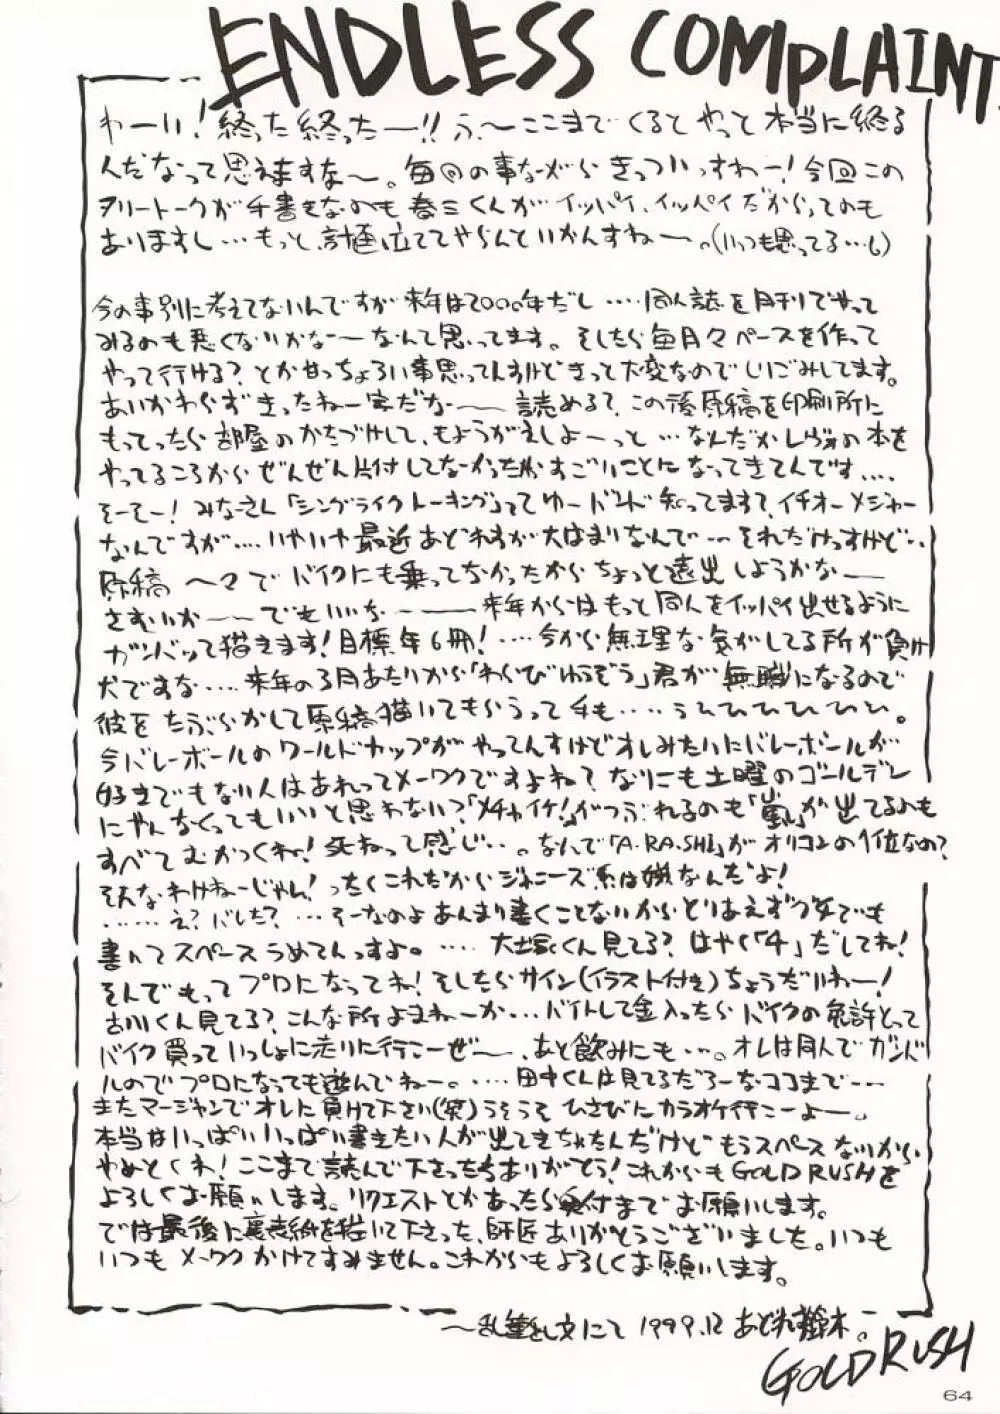 ENDLESS COMPLAINT
わーい!終った終ったー!!ふ、〜ここまでくるとやっと本当に終る
んだなって思えますな〜。毎回の事ながらきっついっすわー!今回この
フリートークが手書きなのも春三くんがイッパイ、イッパイだからってのも
ありますし…もっと、計画立ててやらんといかんすねー。(いつも思ってる…し)
今の事別に考えてないんですが来年は2000年だし....同人誌を月刊でやって
みるのも悪くないかなー〜なんて思ってます。そしたら毎月々ペースを作って
やって行ける?とか甘っちょろい事思ってんすけどきっと大変なのでしりごみしてます。
あいかわらずきったねー字だなー〜読めるて、この後原稿を印刷所に
もってったら部屋のかたづけして、もようがえしよーっと…なんだかレヴォの本を
やってるころからぜんぜん片付してなかったからすごいことになってきてんです....
そーそー!みなーさん「シングライクトーキング」ってゆーバンド知ってますて、イチオーメジャー
なんですが....いやいや最近あどれすが大はまりなんで…それだけっすけど..
原稿〜々でバイクにも乗ってなかったからちょっと遠出しようかなー
さむいかー〜でもいいなー〜来年からはもっと同人をイッパイ出せるように
ガンバって描きます!目標年6冊!....今から無理な気がしてる所が負け
犬ですな....来年の3月あたりから「わらびゆうぞう」君が無職になるので
彼をたぶらかして原稿描いてもらうって手も....うひひひひひひ。
今バレーボールのワールドカップがやってんすけどオレみたいにバレーボールが
好きでもない人はあれってメーワクですよね?なにも土曜のゴールデン
にやんなくってもいいと思わない?「メチャイケ!」がつぶれるのも「嵐」が出てるのも
すべてむかつくわ!死ねって感じ…。なんで「A・RA・SHI」がオリコンの1位なの?
そんなわけねーじゃん!ったくこれだからジャニーズ系は嫌なんだよ!
......え?バレた?…そーなのよあんまり書くことないからとりあえずグチでも
書いてスペースうめてんっすよ。....大塚くん見てる?はやく「4」だしてね!
そんでもってプロになってね!そしたらサイン(イラスト付き)ちょうだいねー!
古川くん見てる?こんな所よまねーか…バイトして金入ったらバイクの免許とって
バイク買っていっしょに走りに行こーぜ〜、あと飲みにも…。オレは同人でガンバ
ルのでプロになっても遊んでねー。....田中くんは見てるだろーなココまで…
またマージャンでオレに負けて下さい(笑)うそうそひさびにカラオケ行こーよー。
本当はいっぱいいっぱい書きたい人が出てきちゃたんだけどもうスペースないから
やめとくわ!ここまで読んで下さったちありがとう!これからもGOLD RUSHを
よろしくお願いします。リクエストとかあったら受付までお願いします。
では最後に裏表紙を描いて下さった、師匠ありがとうございました。いつも
いつもメーワクかけてすみません。これからもよろしくお願いします。
〜乱筆乱文にて 1999.12 あどれす鈴木。
GOLD RUSH
64